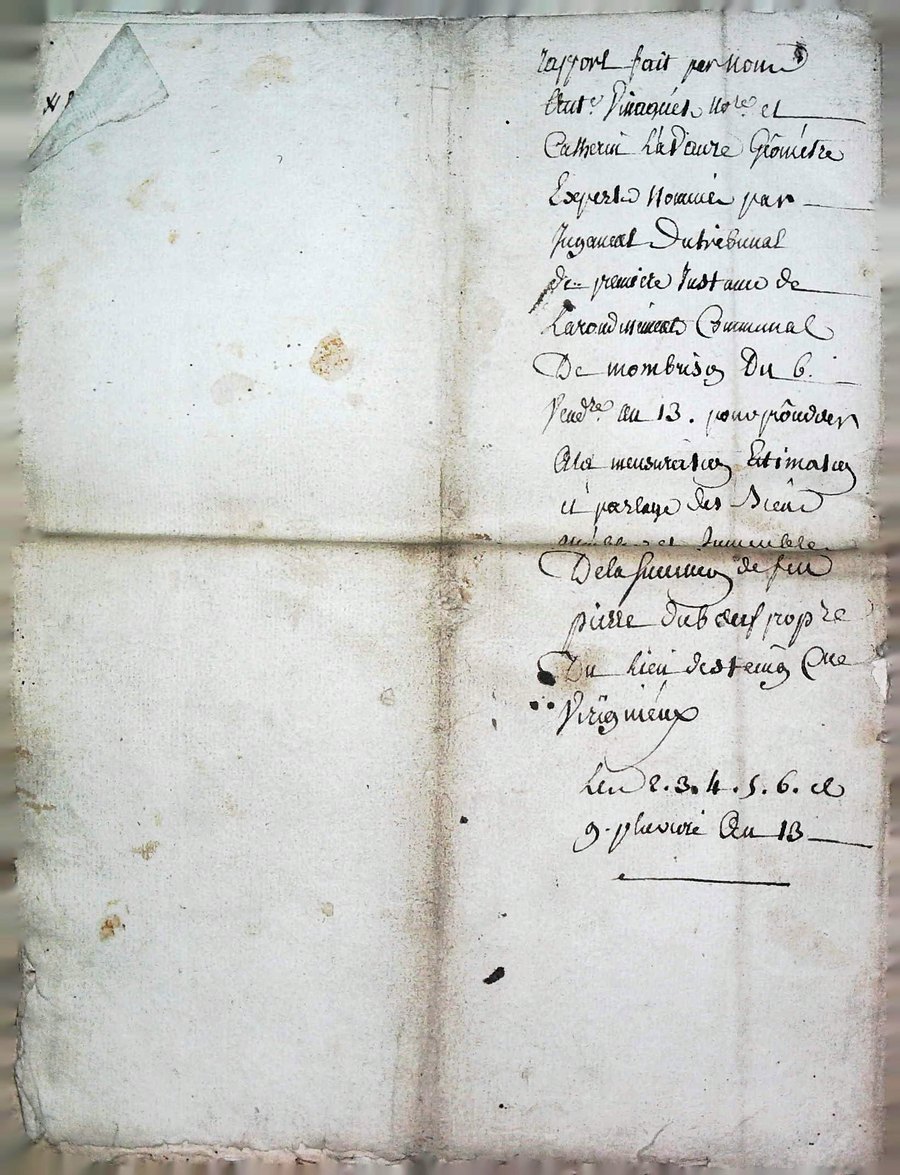 rapport fait par Nous
Ant.e Nore et
Catherin Géomètre
Experts Nommés par
Jugement Du tribunal
De première Instance de
Larondissement Communal
De mombrison Du 6.
Vend.re an 13. pour procéder
A la mensuration Estimation
et partage des Biens
meubles et Immeubles
De la sucession de feu
pierre duboeuf prop.re
Du Lieu Cne
Virignieux
Les 2. 3. 4. 5. 6. et
9. pluviose An 13